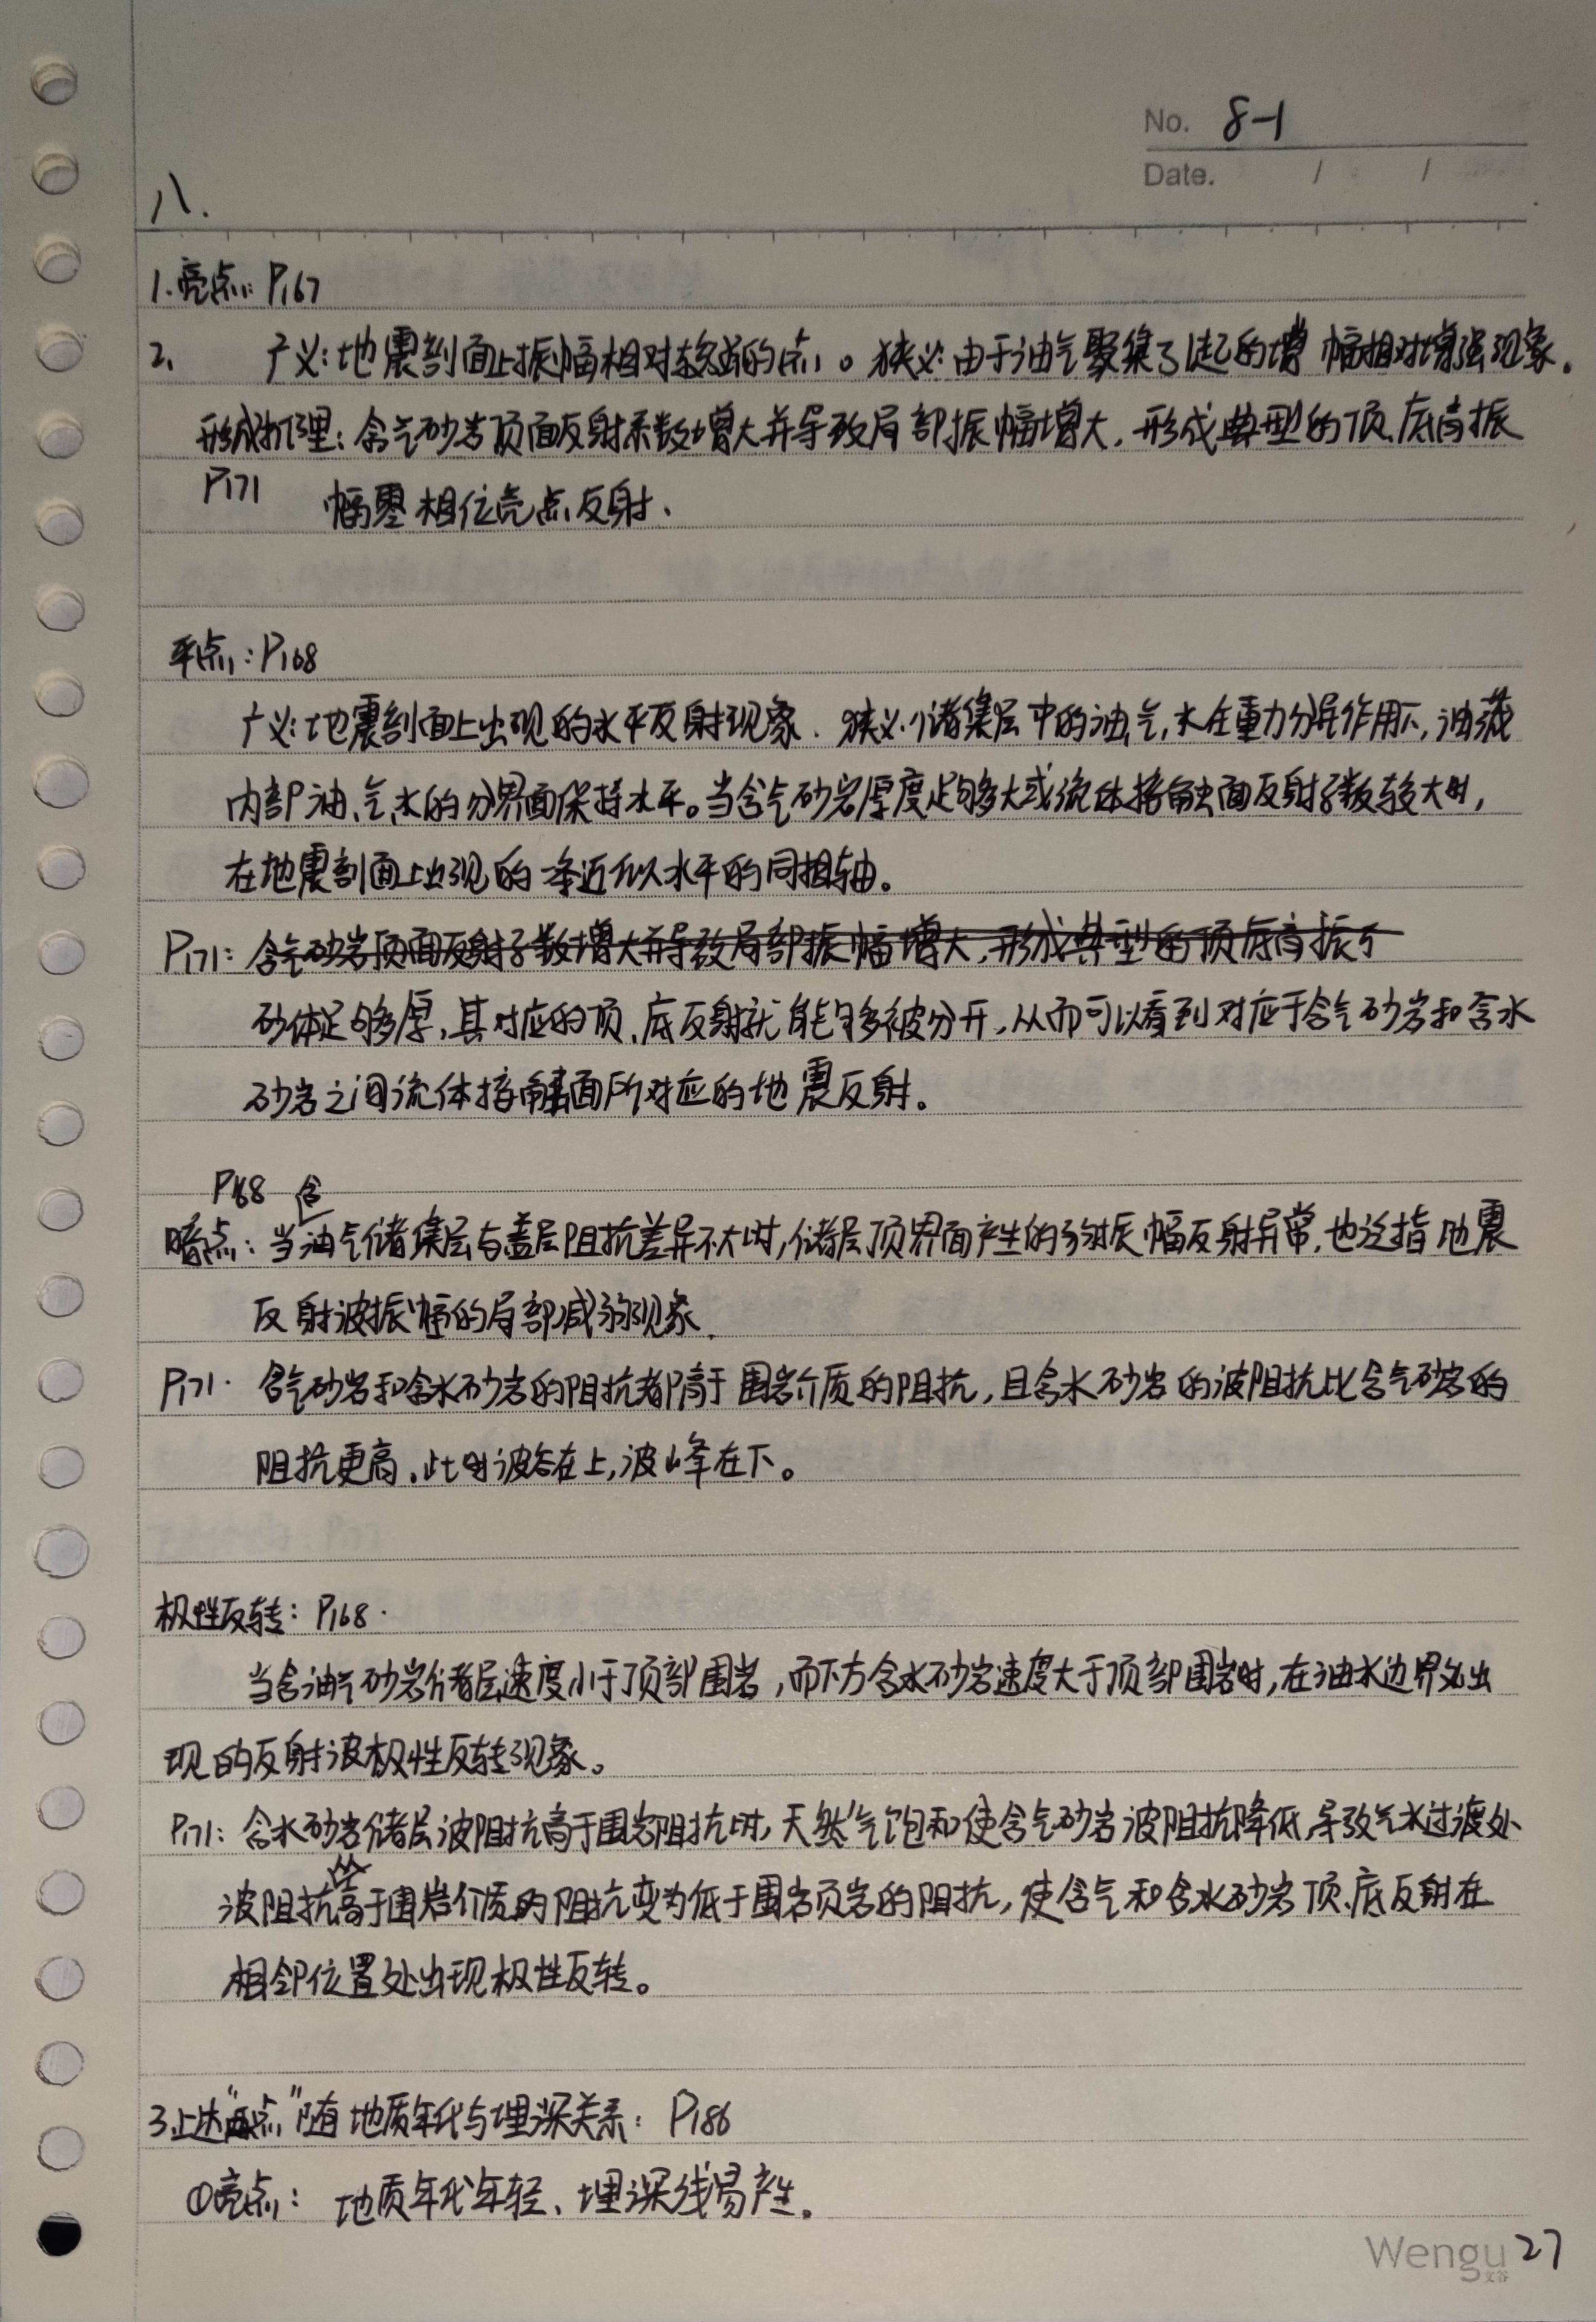 No. 8-1
Date. / /
八.
1.亮点: P167
2. 广义:地震剖面上振幅相对较强的点。狭义:由于油气聚集引起的增 幅相对增强现象.
形成机理: 含气砂岩顶面反射系数增大并导致局部振幅增大, 形成典型的顶、底高振
P171 幅零相位亮点反射.
平点: P168
广义:地震剖面上出现的水平反射现象. 狭义:储集层中的油,气,水在重力分异作用下,油藏
内部油、气、水的分界面保持水平。当含气砂岩厚度足够大或流体接触面反射系数较大时,
在地震剖面上出现的一条近似水平的同相轴。
P171: 含气砂岩顶面反射系数增大并导致局部振幅增大,形成典型的顶底高振
砂体足够厚,其对应的顶、底反射就能够被分开,从而可以看到对应于含气砂岩和含水
砂岩之间流体接触面所对应的地震反射。
P168 含
暗点: 当油气储集层与盖层阻抗差异不大时,储层顶界面产生的弱振幅反射异常.也泛指地震
反射波振幅的局部减弱现象.
P171. 含气砂岩和含水砂岩的阻抗都高于围岩介质的阻抗,且含水砂岩的波阻抗比含气砂岩的
阻抗更高.此时波谷在上,波峰在下。
极性反转: P168.
当含油气砂岩储层速度小于顶部围岩,而下方含水砂岩速度大于顶部围岩时,在油水边界处出
现的反射波极性反转现象。
P171: 含水砂岩储层波阻抗高于围岩阻抗时,天然气饱和使含气砂岩波阻抗降低,导致气水过渡处
从
波阻抗高于围岩介质的阻抗变为低于围岩页岩的阻抗,使含气和含水砂岩顶、底反射在
相邻位置处出现极性反转。
3.上述“点”随地质年代与埋深关系: P186
①亮点: 地质年代年轻、埋深浅易产生。
Wengu 27
文谷